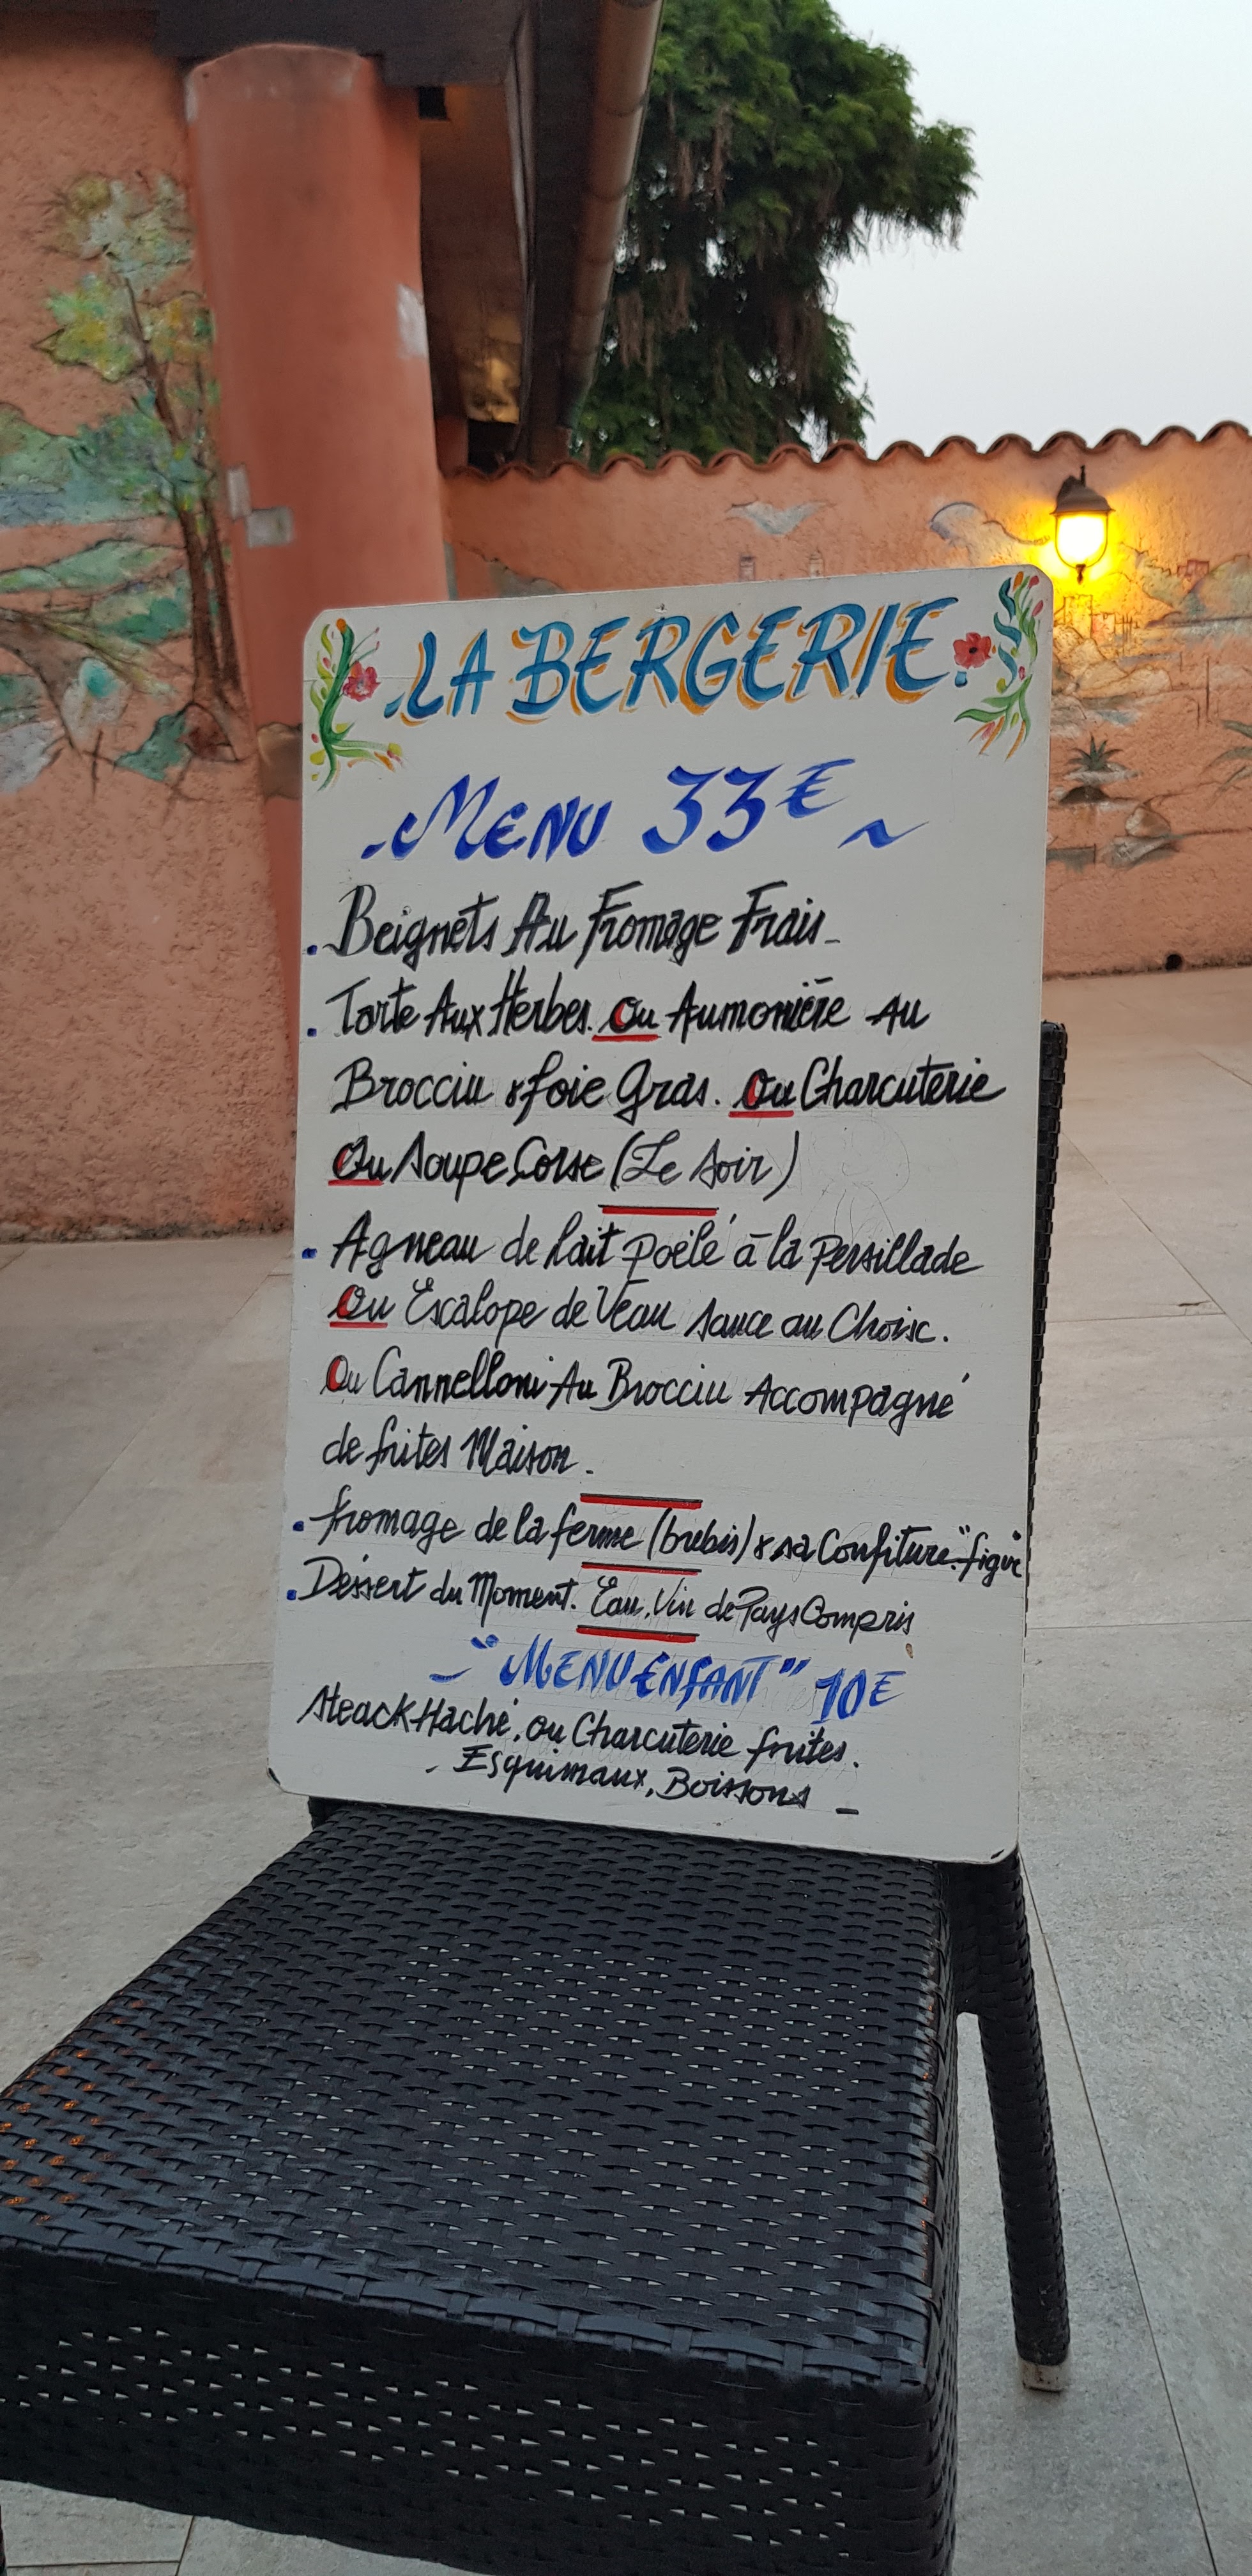 LA BERGERIE.
- MENU 33€ ~
. Beignets Au Fromage Frais -
. Tarte Aux Herbes. Ou Aumonière Au
Brocciu & foie Gras. Ou Charcuterie
Ou Soupe Corse (Le Soir)
. Agneau de lait poëlé à la Persillade
Ou Escalope de Veau Sauce au Choix.
Ou Cannelloni Au Brocciu Accompagné
de frites Maison.
. fromage de la ferme (brebis) & sa Confiture "figue"
. Déssert du Moment. Eau, Vin de Pays Compris
- "MENU ENFANT" 10€
Steack Haché, ou Charcuterie frites.
- Esquimaux, Boissons -